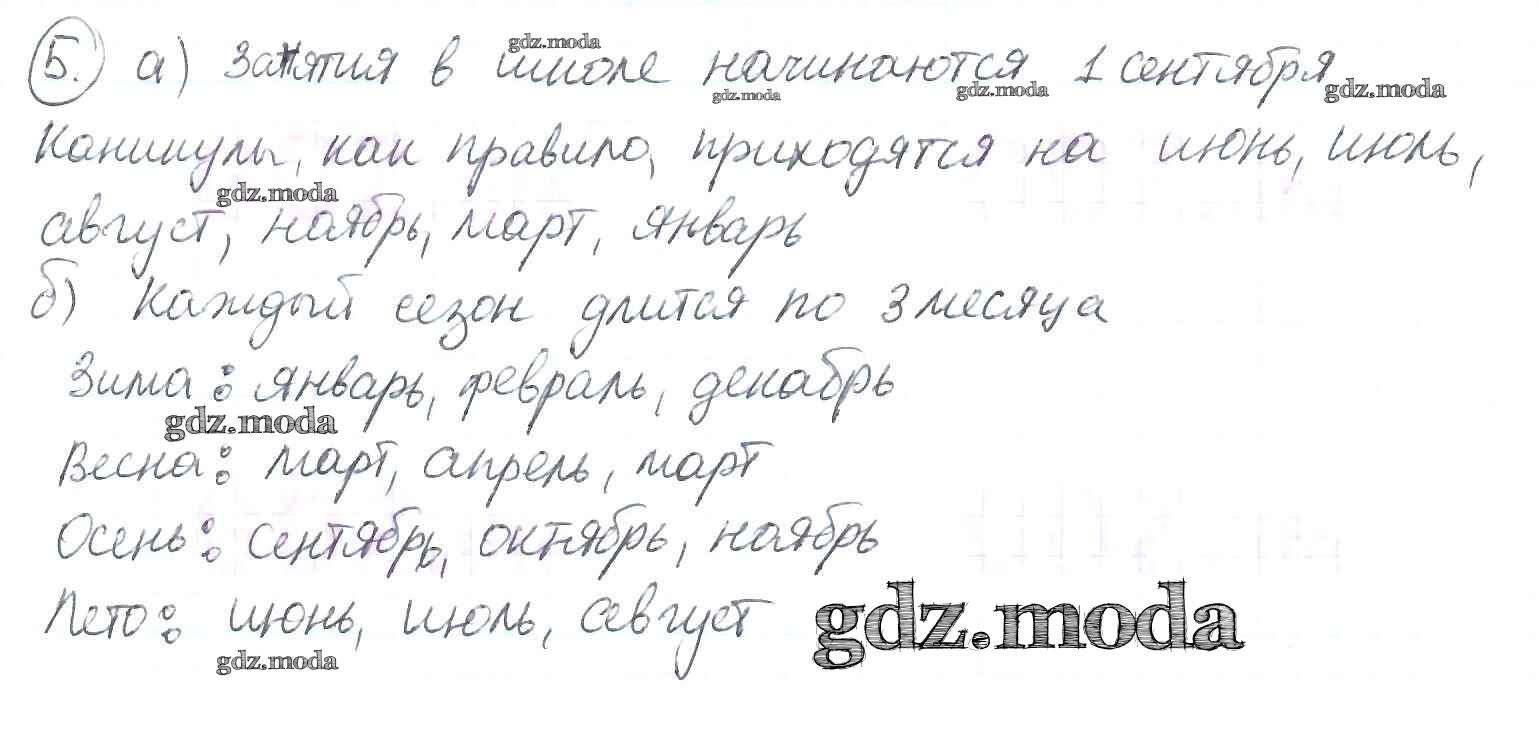 gdz.moda
5. а) Занятия в школе начинаются 1 сентября
gdz.moda gdz.moda gdz.moda
Каникулы, как правило, приходятся на июнь, июль,
gdz.moda
август, ноябрь, март, январь
б) Каждый сезон длится по 3 месяца
Зима: январь, февраль, декабрь
gdz.moda
Весна: март, апрель, март
Осень: сентябрь, октябрь, ноябрь
Лето: июнь, июль, август
gdz.moda
gdz.moda